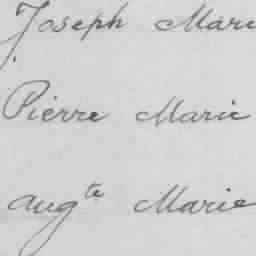 Joseph Marie
Pierre Marie
Augte Marie